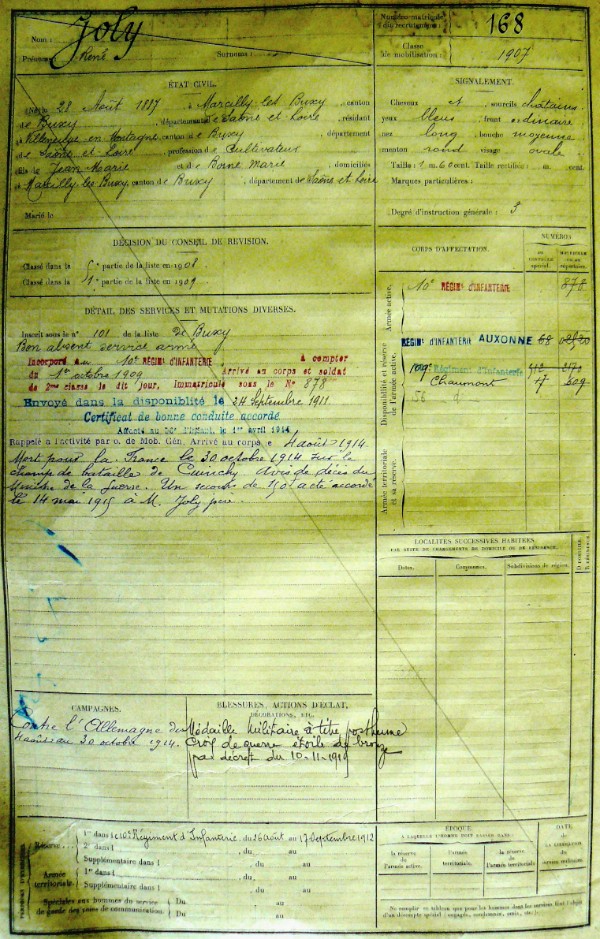 Nom : Joly
Prénoms : René Surnoms :
Numéro matricule
du recrutement : 168
Classe
de mobilisation : 1907
ÉTAT CIVIL.
Né le 28 Août 1887, à Marcilly les Buxy, canton
de Buxy, département de Saône et Loire, résidant
à Villeneuve en Montagne, canton de Buxy, département
de Saône et Loire, profession de Cultivateur
fils de Jean Marie et de Borne Marie, domiciliés
à Marcilly les Buxy, canton de Buxy, département de Saône et Loire
Marié le
SIGNALEMENT.
Cheveux et sourcils châtains
yeux bleus, front ordinaire
nez long, bouche moyenne
menton rond visage ovale
Taille : 1 m. 60 cent. Taille rectifiée : m. cent.
Marques particulières :
Degré d'instruction générale : 3
DÉCISION DU CONSEIL DE RÉVISION.
Classé dans la 5e partie de la liste en 1908
Classé dans la 1re partie de la liste en 1909
DÉTAIL DES SERVICES ET MUTATIONS DIVERSES.
Inscrit sous le n° 101 de la liste de Buxy
Bon absent service armé
Incorporé au 10e RÉGIMENT D'INFANTERIE, à compter
du 1er octobre 1909, Arrivé au corps et soldat
de 2me classe le dit jour. Immatriculé sous le N° 878
Envoyé dans la disponibilité le 24 Septembre 1911
Certificat de bonne conduite accordé
Affecté au 56e d'Infant. le 1er avril 1914
Rappelé à l'activité par o. de Mob. Gén. Arrivé au corps le 4 août 1914.
Mort pour la France le 30 octobre 1914 sur le
champ de bataille de Avis de décès du
Ministre de la guerre. Un secours de 150f a été accordé
le 14 mai 1915 à M. Joly père.
CORPS D'AFFECTATION.
NUMÉROS
Armée active.
10e RÉGIMENT D'INFANTERIE 878
Disponibilité et réserve
de l'armée active.
RÉGIMt D'INFANTERIE AUXONNE 68
109e Régiment d'Infanterie
Chaumont 17 609
56 d
Armée territoriale
et sa réserve.
LOCALITÉS SUCCESSIVES HABITÉES
PAR SUITE DE CHANGEMENTS DE DOMICILE OU DE RÉSIDENCE.
Dates. Communes. Subdivisions de région. D domicile. R résidence.
CAMPAGNES.
Contre l'Allemagne du
4 août au 30 octobre 1914.
BLESSURES, ACTIONS D'ÉCLAT,
DÉCORATIONS, ETC.
Médaille militaire à titre posthume
Croix de guerre étoile de bronze
par décret du 10-11-19
Réserve. 1re dans le 10e Régiment d'Infanterie du 26 Août au 17 Septembre 1912
2e dans l du au
Supplémentaire dans l du au
Armée
territoriale. 1re dans l du au
Supplémentaire dans l du au
Spéciales aux hommes du service
de garde des voies de communication. Du au
Du au
ÉPOQUE
À LAQUELLE L'HOMME DOIT PASSER DANS :
la réserve
de l'armée active.
l'armée
territoriale.
la réserve
de l'armée territoriale
DATE
DE LA LIBÉRATION
du service militaire.